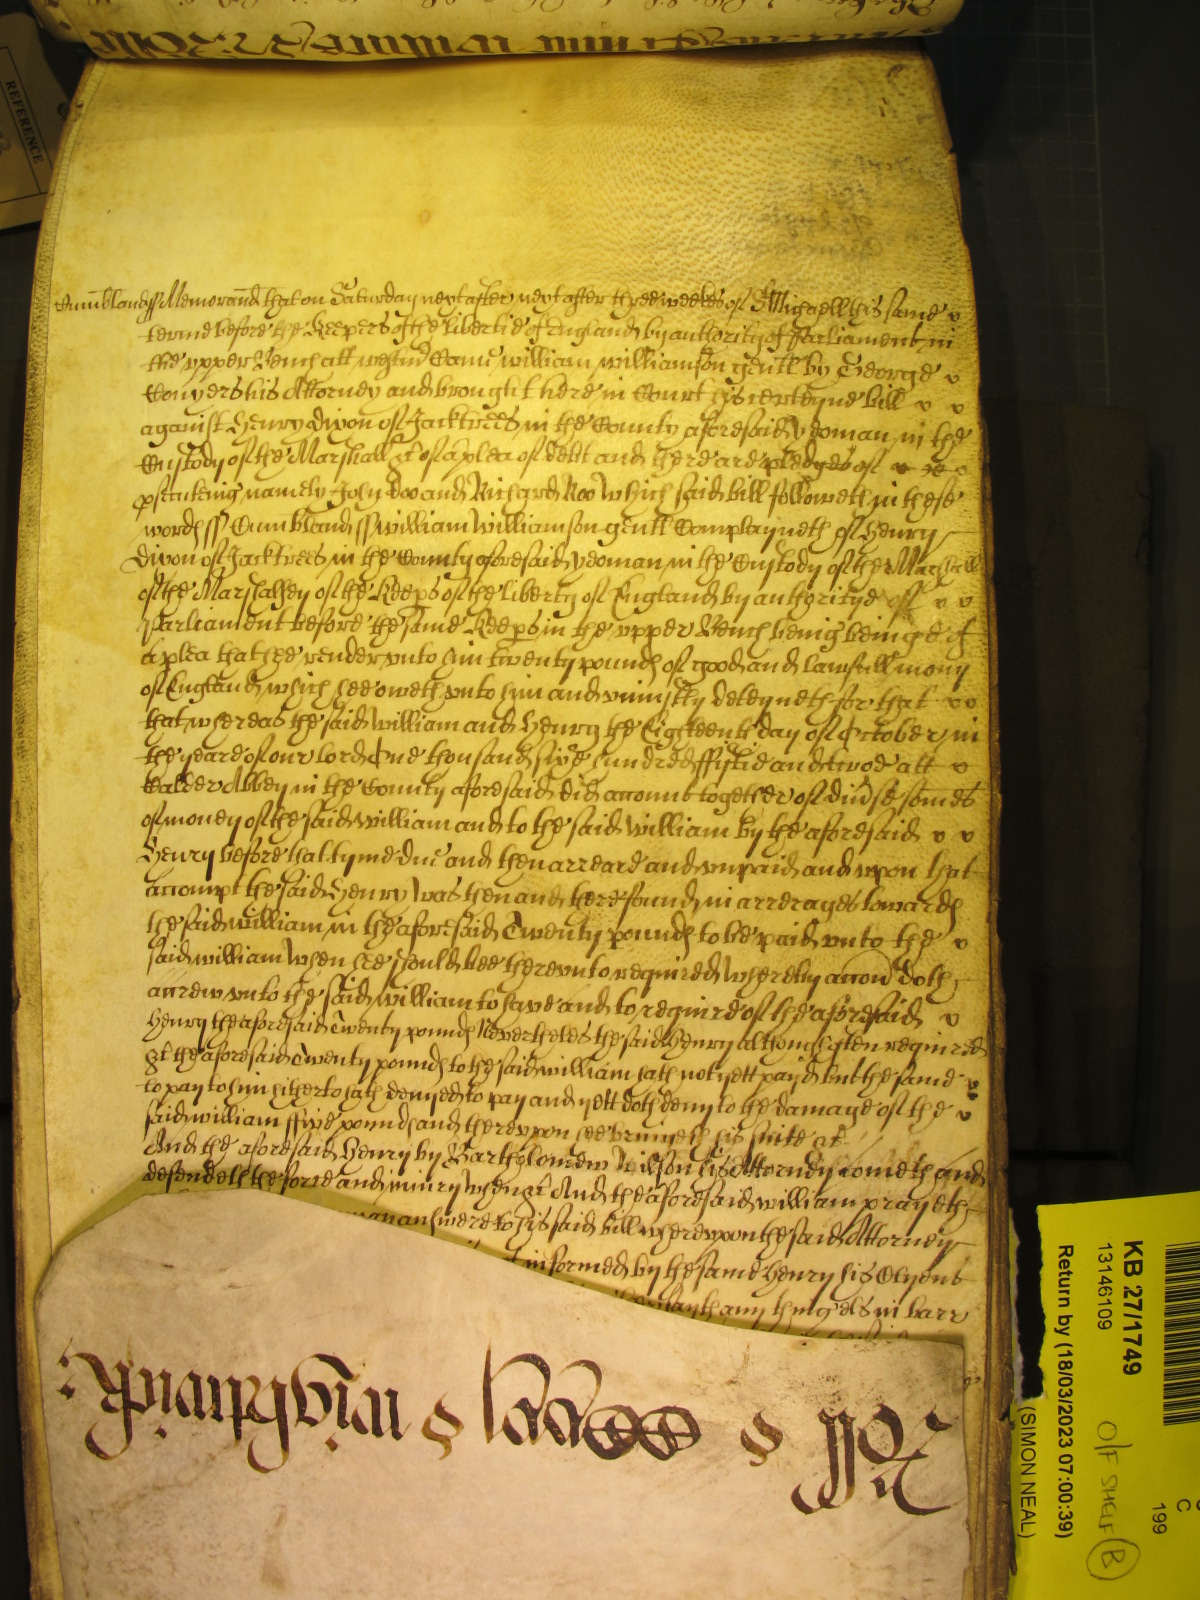 Cumbland ss Memorand that on Saturday next after next after three weekes of St Michaell this same
terme before the Keepers of the libertie of England by authority of Parliament in
the upper Bench att Westm Came William Williamson gentl by George
Conyers his Attorney and brought here in Court his certeyne bill
against Henry Dixon of Jacktrees in the County aforesaid yeoman in the
Custody of the Marshall &c of a plea of debt and there are pledges of
psecuteing namely John Doo and Richard Roo Which said bill followeth in these
words ss Cumbland ss William Williamson gentl Complayneth of Henry
Dixon of Jacktrees in the County aforesaid yeoman in the Custody of the Marshall
of the Marshalsey of the Keeps of the liberty of England by authoritye of
Parliament before the same Keeps in the upper Bench being being of
a plea that hee render unto him twenty pounds of good and lawfull mony
of England which hee oweth unto him and uniustly deteyneth for that
that whereas the said William and Henry the Eighteenth day of October in
the yeare of our lord One thousand sixe hundred ffyftie and twoe att
Calder Abbey in the County aforesaid did account together of divse somes
of money of the said William and to the said William by the aforesaid
Henry before that tyme due and then arreare and unpaid and upon that
accompt the said Henry Was then and there found in arrerages towards
the said William in the aforesaid Twenty pounds to be paid unto the
said William When hee should bee thereunto required Whereby accon doth
accrew unto the said William to have and to require of the aforesaid
Henry the aforesaid Twenty pounds Nevertheles the said Henry although often required
&c the aforesaid Twenty pounds to the said William hath not yett payd but the same
to pay to him hitherto hath denyed to pay and yett doth deny to the damage of the
said William ffive pounds and thereupon hee bringeth his suite &c
And the aforesaid Henry by Bartholomew Nilson his Attorney cometh and
defendeth the force and iniury When &c And the aforesaid William prayeth
may answere to his said bill whereupon the said Attorney
informed by the same Henry his Clyent
any thing els in barr
KB 27/1749
13146109
Return by (18/03/2023 07:00:39)
(SIMON NEAL)
O/F SHELF B
C
199
REFERENCE